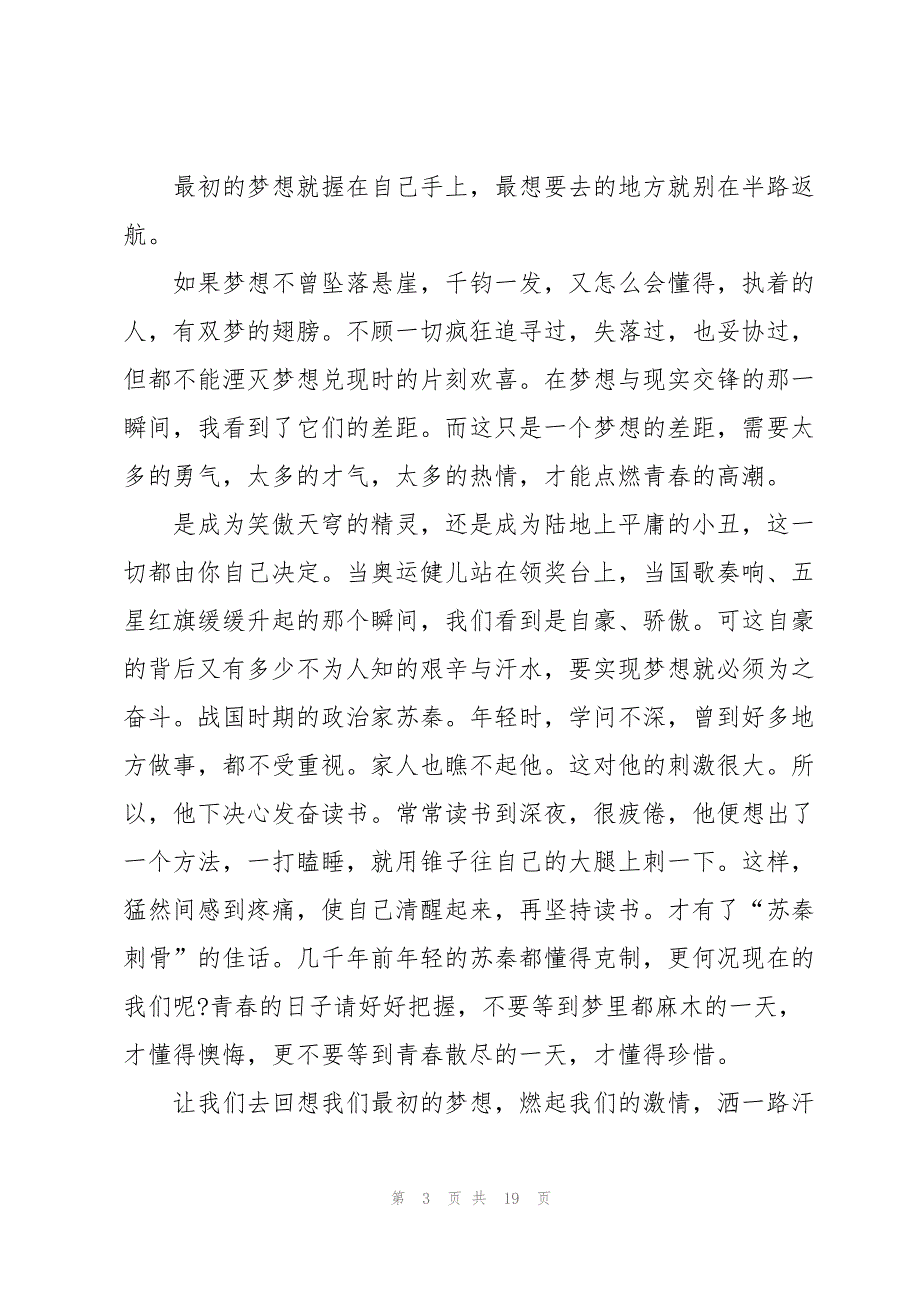 最初的梦想就握在自己手上，最想要去的地方就别在半路返
航。
如果梦想不曾坠落悬崖，千钧一发，又怎么会懂得，执着的
人，有双梦的翅膀。不顾一切疯狂追寻过，失落过，也妥协过，
但都不能湮灭梦想兑现时的片刻欢喜。在梦想与现实交锋的那一
瞬间，我看到了它们的差距。而这只是一个梦想的差距，需要太
多的勇气，太多的才气，太多的热情，才能点燃青春的高潮。
是成为笑傲天穹的精灵，还是成为陆地上平庸的小丑，这一
切都由你自己决定。当奥运健儿站在领奖台上，当国歌奏响、五
星红旗缓缓升起的那个瞬间，我们看到是自豪、骄傲。可这自豪
的背后又有多少不为人知的艰辛与汗水，要实现梦想就必须为之
奋斗。战国时期的政治家苏秦。年轻时，学问不深，曾到好多地
方做事，都不受重视。家人也瞧不起他。这对他的刺激很大。所
以，他下决心发奋读书。常常读书到深夜，很疲倦，他便想出了
一个方法，一打瞌睡，就用锥子往自己的大腿上刺一下。这样，
猛然间感到疼痛，使自己清醒起来，再坚持读书。才有了“苏秦
刺骨”的佳话。几千年前年轻的苏秦都懂得克制，更何况现在的
我们呢?青春的日子请好好把握，不要等到梦里都麻木的一天，
才懂得懊悔，更不要等到青春散尽的一天，才懂得珍惜。
让我们去回想我们最初的梦想，燃起我们的激情，洒一路汗
第 3 页 共 19 页